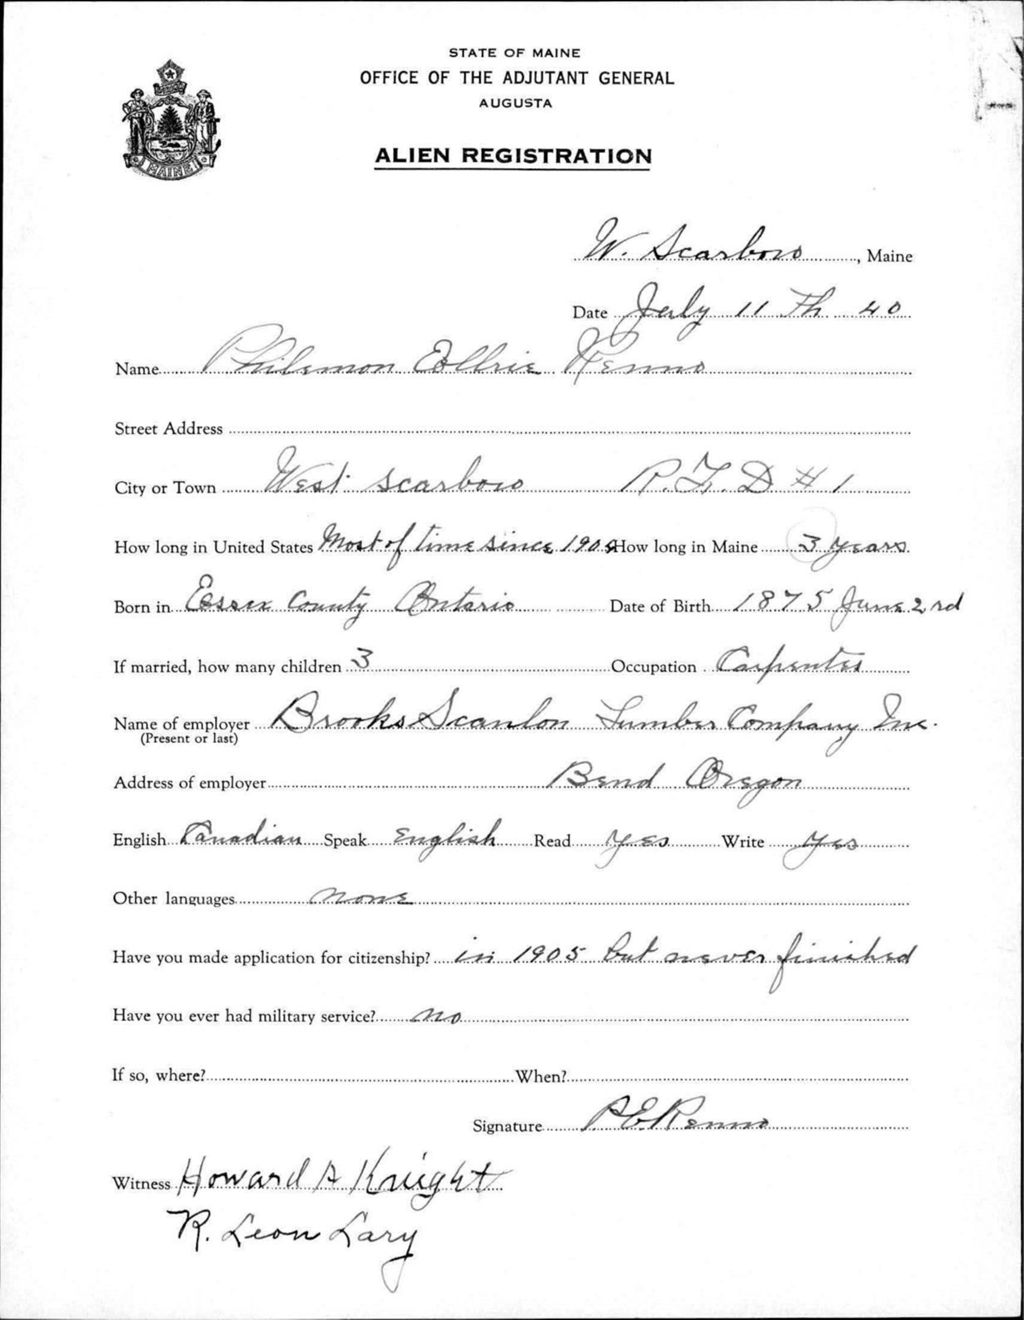 STATE OF MAINE
OFFICE OF THE ADJUTANT GENERAL
AUGUSTA
MAINE
ALIEN REGISTRATION
W. Scarboro, Maine
Date July 11 Th 40
Name Philemon Renno
Street Address
City or Town West Scarboro R.F.D # 1
How long in United States Most of time since How long in Maine 3 years
Born in Essex County Ontario Date of Birth 1875 June 2rd
If married, how many children 3 Occupation Carpenter
Name of employer Brooks Scanlon Lumber Company Inc.
(Present or last)
Address of employer Bend Oregon
English Canadian Speak English Read yes Write yes
Other languages none
Have you made application for citizenship? in 1905 but never finished
Have you ever had military service? no
If so, where? When?
Signature P E Renno
Witness Howard A Knight
R. Leon Lary